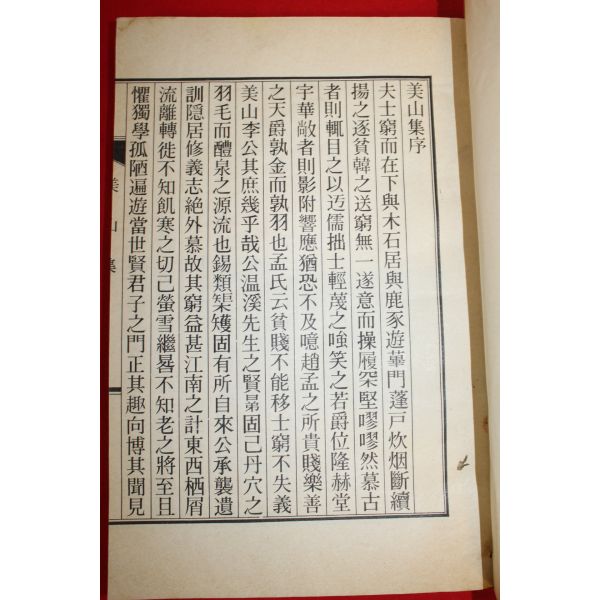 美山集序
夫士窮而在下與木石居與鹿豕遊蓽門蓬戶炊烟斷續
揚之逐貧韓之送窮無一遂意而操履罙堅嘐嘐然慕古
者則輒目之以迃儒拙士輕蔑之嗤笑之若爵位隆赫堂
宇華敞者則影附響應猶恐不及噫趙孟之所貴賤樂善
之天爵孰金而孰羽也孟氏云貧賤不能移士窮不失義
美山李公其庶幾乎哉公温溪先生之賢晜固已丹穴之
羽毛而醴泉之源流也錫類榘矱固有所自來公承襲遺
訓隱居修義志絶外慕故其窮益甚江南之計東西栖屑
流離轉徙不知飢寒之切己螢雪繼晷不知老之將至且
懼獨學孤陋遍遊當世賢君子之門正其趣向博其聞見
美山集